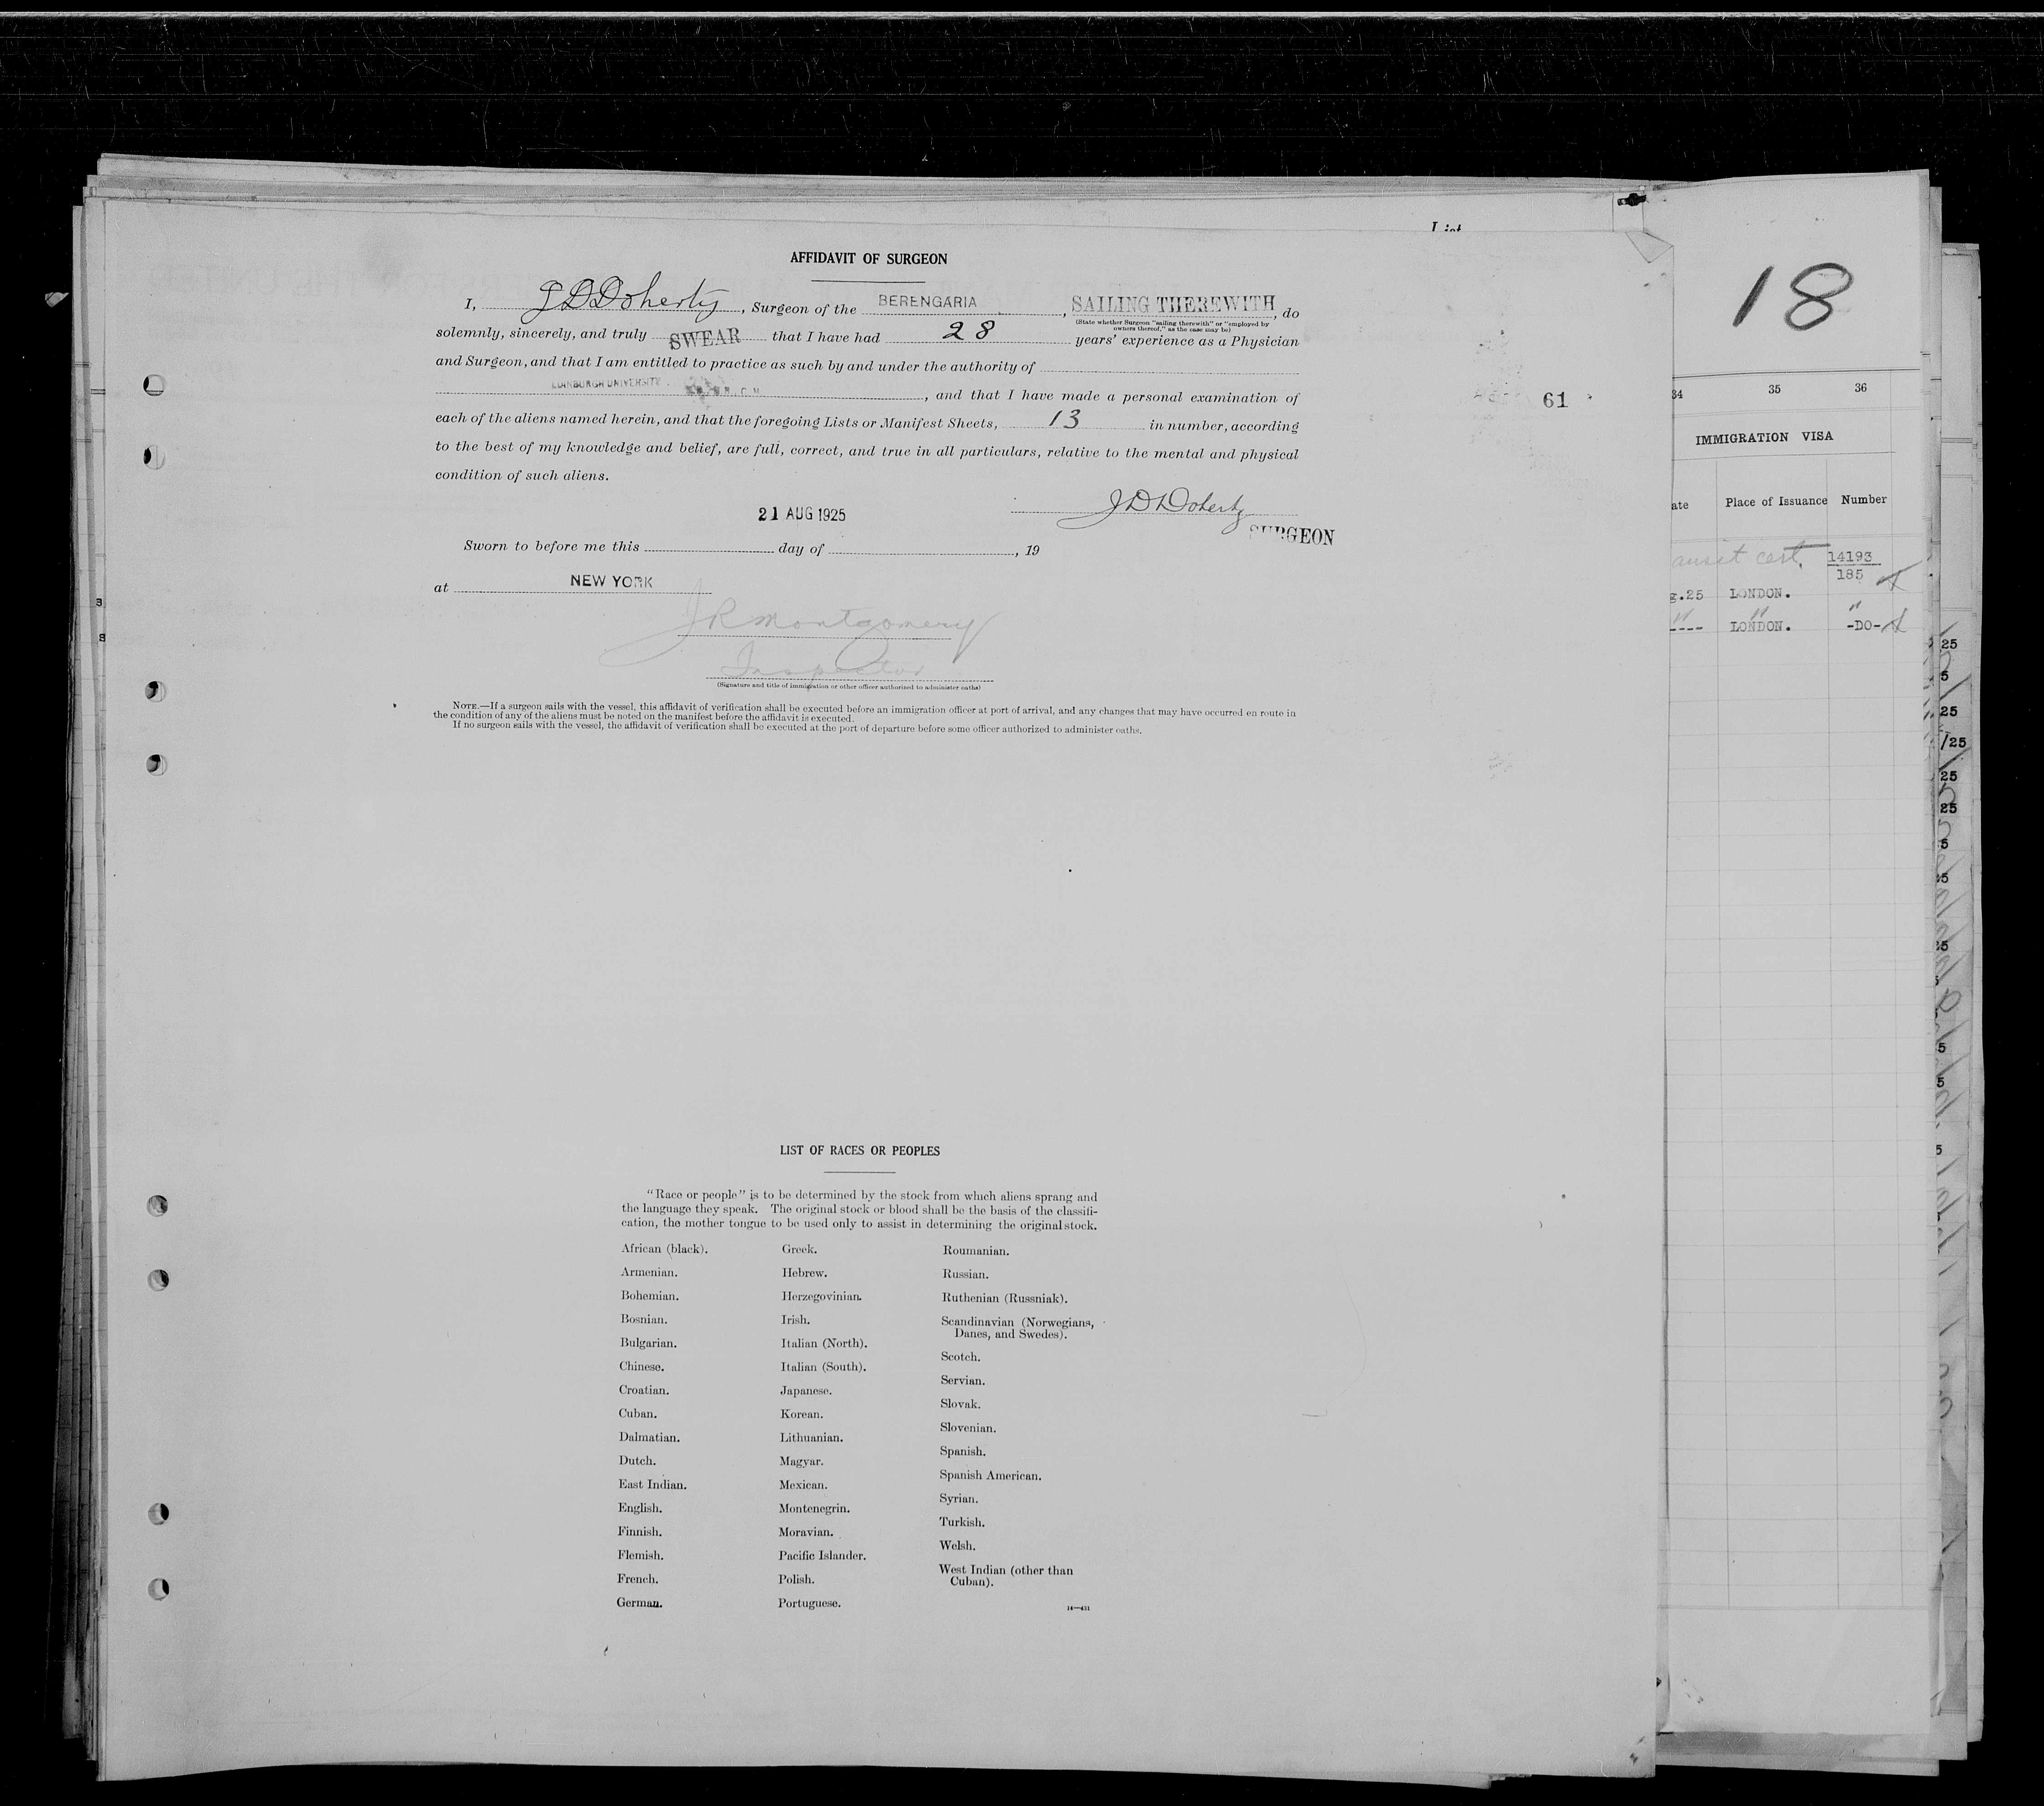 AFFIDAVIT OF SURGEON
I, J D Doherty, Surgeon of the BERENGARIA, SAILING THEREWITH, do
(State whether Surgeon "sailing therewith" or "employed by
owners thereof," as the case may be)
solemnly, sincerely, and truly SWEAR that I have had 28 years' experience as a Physician
and Surgeon, and that I am entitled to practice as such by and under the authority of
EDINBURGH UNIVERSITY , and that I have made a personal examination of
each of the aliens named herein, and that the foregoing Lists or Manifest Sheets, 13 in number, according
to the best of my knowledge and belief, are full, correct, and true in all particulars, relative to the mental and physical
condition of such aliens.
J D Doherty
SURGEON
21 AUG 1925
Sworn to before me this day of , 19
at NEW YORK
J R Montgomery
Inspector
(Signature and title of immigration or other officer authorized to administer oaths)
NOTE.—If a surgeon sails with the vessel, this affidavit of verification shall be executed before an immigration officer at port of arrival, and any changes that may have occurred en route in
the condition of any of the aliens must be noted on the manifest before the affidavit is executed.
If no surgeon sails with the vessel, the affidavit of verification shall be executed at the port of departure before some officer authorized to administer oaths.
61
LIST OF RACES OR PEOPLES
"Race or people" is to be determined by the stock from which aliens sprang and
the language they speak. The original stock or blood shall be the basis of the classifi-
cation, the mother tongue to be used only to assist in determining the original stock.
African (black).
Armenian.
Bohemian.
Bosnian.
Bulgarian.
Chinese.
Croatian.
Cuban.
Dalmatian.
Dutch.
East Indian.
English.
Finnish.
Flemish.
French.
German.
Greek.
Hebrew.
Herzegovinian.
Irish.
Italian (North).
Italian (South).
Japanese.
Korean.
Lithuanian.
Magyar.
Mexican.
Montenegrin.
Moravian.
Pacific Islander.
Polish.
Portuguese.
Roumanian.
Russian.
Ruthenian (Russniak).
Scandinavian (Norwegians,
Danes, and Swedes).
Scotch.
Servian.
Slovak.
Slovenian.
Spanish.
Spanish American.
Syrian.
Turkish.
Welsh.
West Indian (other than
Cuban).
14—431
List
18
34 35 36
IMMIGRATION VISA
ate Place of Issuance Number
ansit cert. 14193
185
g.25 LONDON.
" " "
---- LONDON. -DO-
25
5
25
/25
25
25
5
25
25
5
5
5